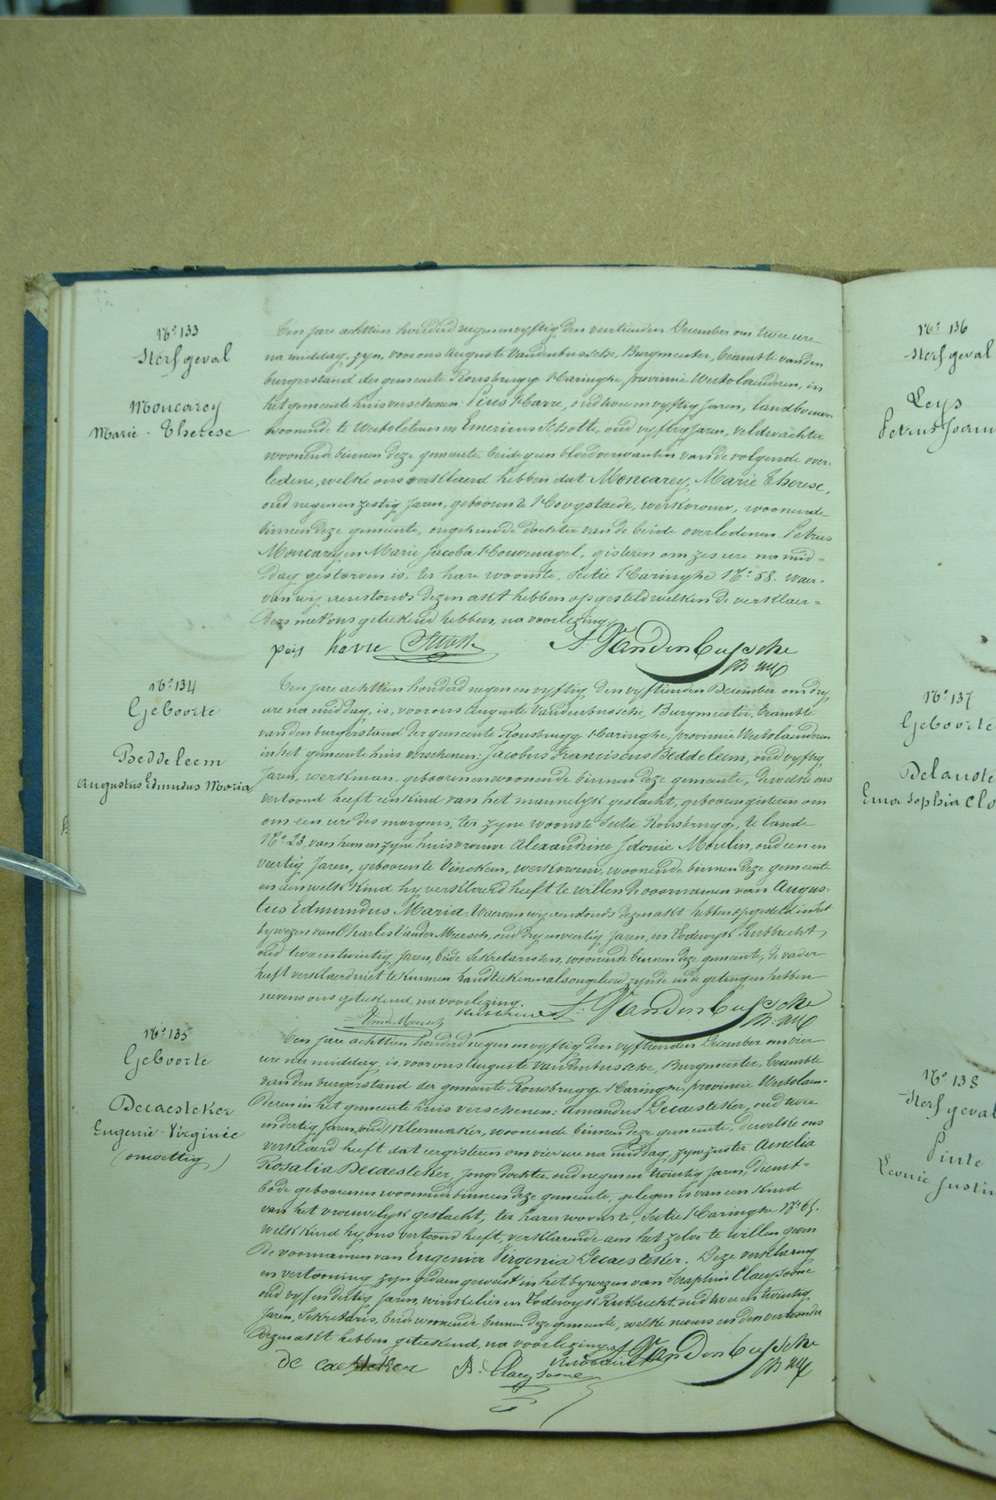 N° 133
Sterfgeval
Moncarey
Marie-Therese
Den jare achttien honderd negen en vyftig, den veertienden December om twee ure
na middag, zyn, voor ons Auguste Vandenbussche, Burgmeester, beambte van den
burgerstand der gemeente Rousbrugge Haringhe, provincie Westvlaendren, in
het gemeente huis verschenen: Pieis Havre, oud twee en vyftig Jaren, landbouwer
woonende te Westvleteren en Emericus Schotte, oud vyftig Jaren, veldwachter
woonende binnen deze gemeente, beide geen bloedverwanten van de volgende over-
ledene, welke ons verklaerd hebben dat Moncarey, Marie Therese,
oud negen en zestig Jaren, geboren te Hoogstaede, werkvrouw, woonende
binnen deze gemeente, ongehuwde dochter van de beide overledenen Petrus
Moncarey en Marie Jacoba Houvenagel, gisteren om zes ure na mid-
dag gestorven is, ter hare woonste, Sectie Haringhe N° 58. waer-
van wij aenstonds dezen akt hebben opgesteld welken de verklaer-
ders met ons geteekend hebben, na voorlezing.
pieis havre Schotte A. Vandenbussche
Burg
N° 134
Geboorte
Beddeleem
Augustus Edmundus Maria
Den jare achttien honderd negen en vyftig, den vyftienden December om dry
ure na middag, is, voor ons Auguste Vandenbussche, Burgmeester, beambte
van den burgerstand der gemeente Rousbrugge Haringhe, provincie Westvlaendren
in het gemeente huis verschenen: Jacobus Franciscus Beddeleem, oud vyftig
Jaren, werkman, geboren en woonende binnen deze gemeente, dewelke ons
vertoond heeft een kind van het mannelyk geslacht, geboren gisteren om
om een ure des morgens, ter zyne woonste Sectie Rousbrugge, te lande
N° 23, van hem en zyne huisvrouw Alexandrine Idonie Moulin, oud een en
veertig Jaren, geboren te Vinckem, werkvrouw, woonende binnen deze gemeente
en aen welk kind hy verklaerd heeft te willen de voornamen van Augus-
tus Edmundus Maria. Waervan wij aenstonds dezen akt hebben opgesteld in het
bywezen van Charles Vander Meersch, oud dry en veertig Jaren, en Lodewyk Rubbrecht
oud twee en twintig Jaren, beide Sekretarissen, woonende binnen deze gemeente; de vader
heeft verklaerd niet te kunnen handteekenen als ongeleerd zynde en de getuigen hebben
nevens ons geteekend, na voorlezing.
VanderMeersch Rubbrecht A. Vandenbussche
Burg
N° 135
Geboorte
Decaesteker
Eugenie-Virginie
(onwettig)
Den jare achttien honderd negen en vyftig den vyftienden December om vier
ure na middag, is voor ons Auguste Vandenbussche, Burgmeester, beambte
van den burgerstand der gemeente Rousbrugge Haringhe, provincie Westvlaen-
deren in het gemeente huis verschenen: Amandus Decaesteker, oud twee
en dertig Jaren, oud kleermaker, woonende binnen deze gemeente, dewelke ons
verklaerd heeft dat eergisteren om vier ure na middag, zyne zuster Amelia
Rosalia Decaesteker, jonge dochter, oud negen en twintig Jaren, dienst-
bode geboren en woonende binnen deze gemeente, gelegen is van een kind
van het vrouwelyk geslacht, ter harer woonste, Sectie Haringhe N° 65.
welk kind hy ons vertoond heeft, verklarende aen het zelve te willen geven
de voornamen van Eugenia Virginia Decaesteker. Deze verklaring
en vertooning zyn gedaen geweest in het bywezen van Seraphin Claeysoone
oud vyf en dertig Jaren, winkelier en Lodewyk Rubbrecht oud twee en twintig
Jaren, Sekretaris, beide woonende binnen deze gemeente, welke nevens ons den vertoonder
dezen akt hebben geteekend, na voorlezing.
de caesteker S. Claeysoone Rubbrecht A. Vandenbussche
Burg
N° 136
Sterfgeval
Leys
Petrus Joann
N° 137
Geboorte
Delanote
Ema Sophia Clo
N° 138
Sterfgeval
Pinte
Leonie Justin